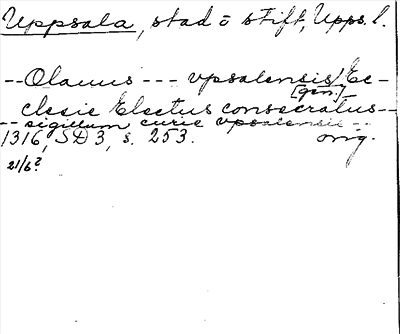 Uppsala, stad o stift, Upps. l.
-- Olauus --- vpsalensis [gen.] Ec-
clesie Electus consecratus --
-- sigillum curie vpsalensis --
1316, SD 3, s. 253. orig.
21/6?